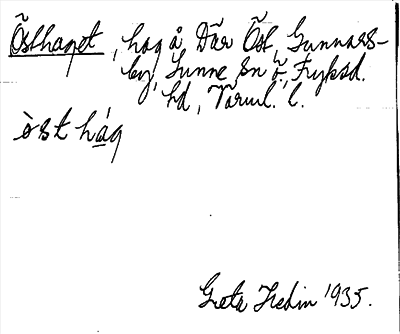 Östhaget, hag å Där Öst, Gunnars-
by, Sunne sn ö, Fryksd.
hd, Värml. l.
òst hág
Greta Hedin 1935.